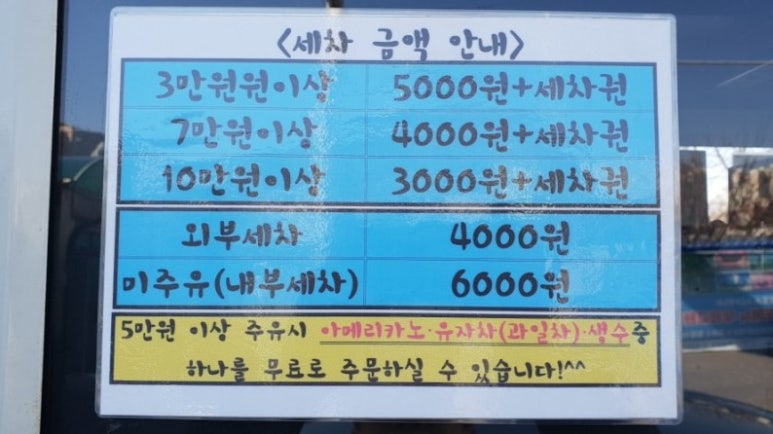 <세차 금액 안내>
3만원원이상 5000원+세차권
7만원이상 4000원+세차권
10만원이상 3000원+세차권
외부세차 4000원
미주유(내부세차) 6000원
5만원 이상 주유시 아메리카노·유자차(과일차)·생수중
하나를 무료로 주문하실 수 있습니다!^^